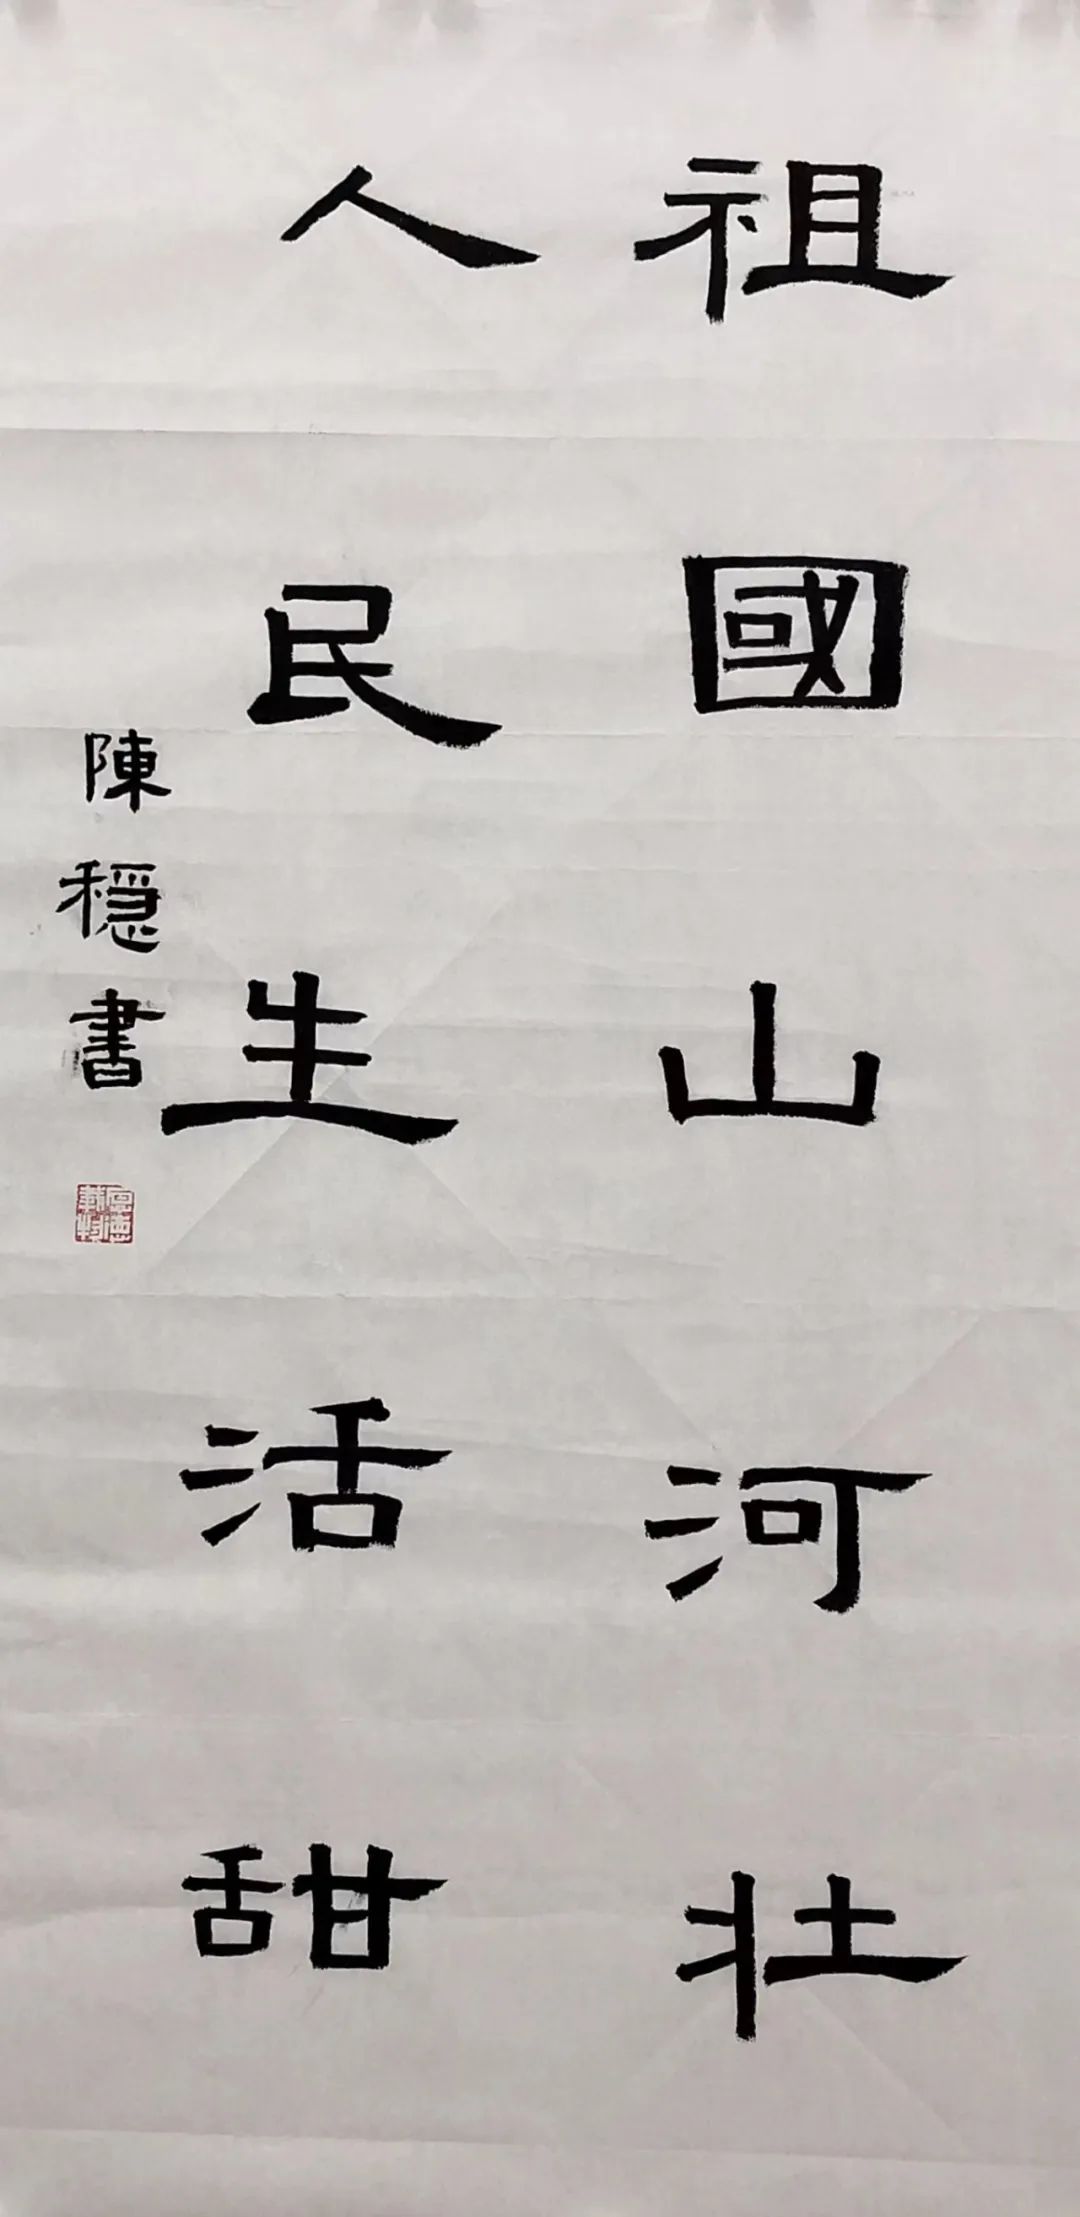 祖國山河壯
人民生活甜
陳穩書